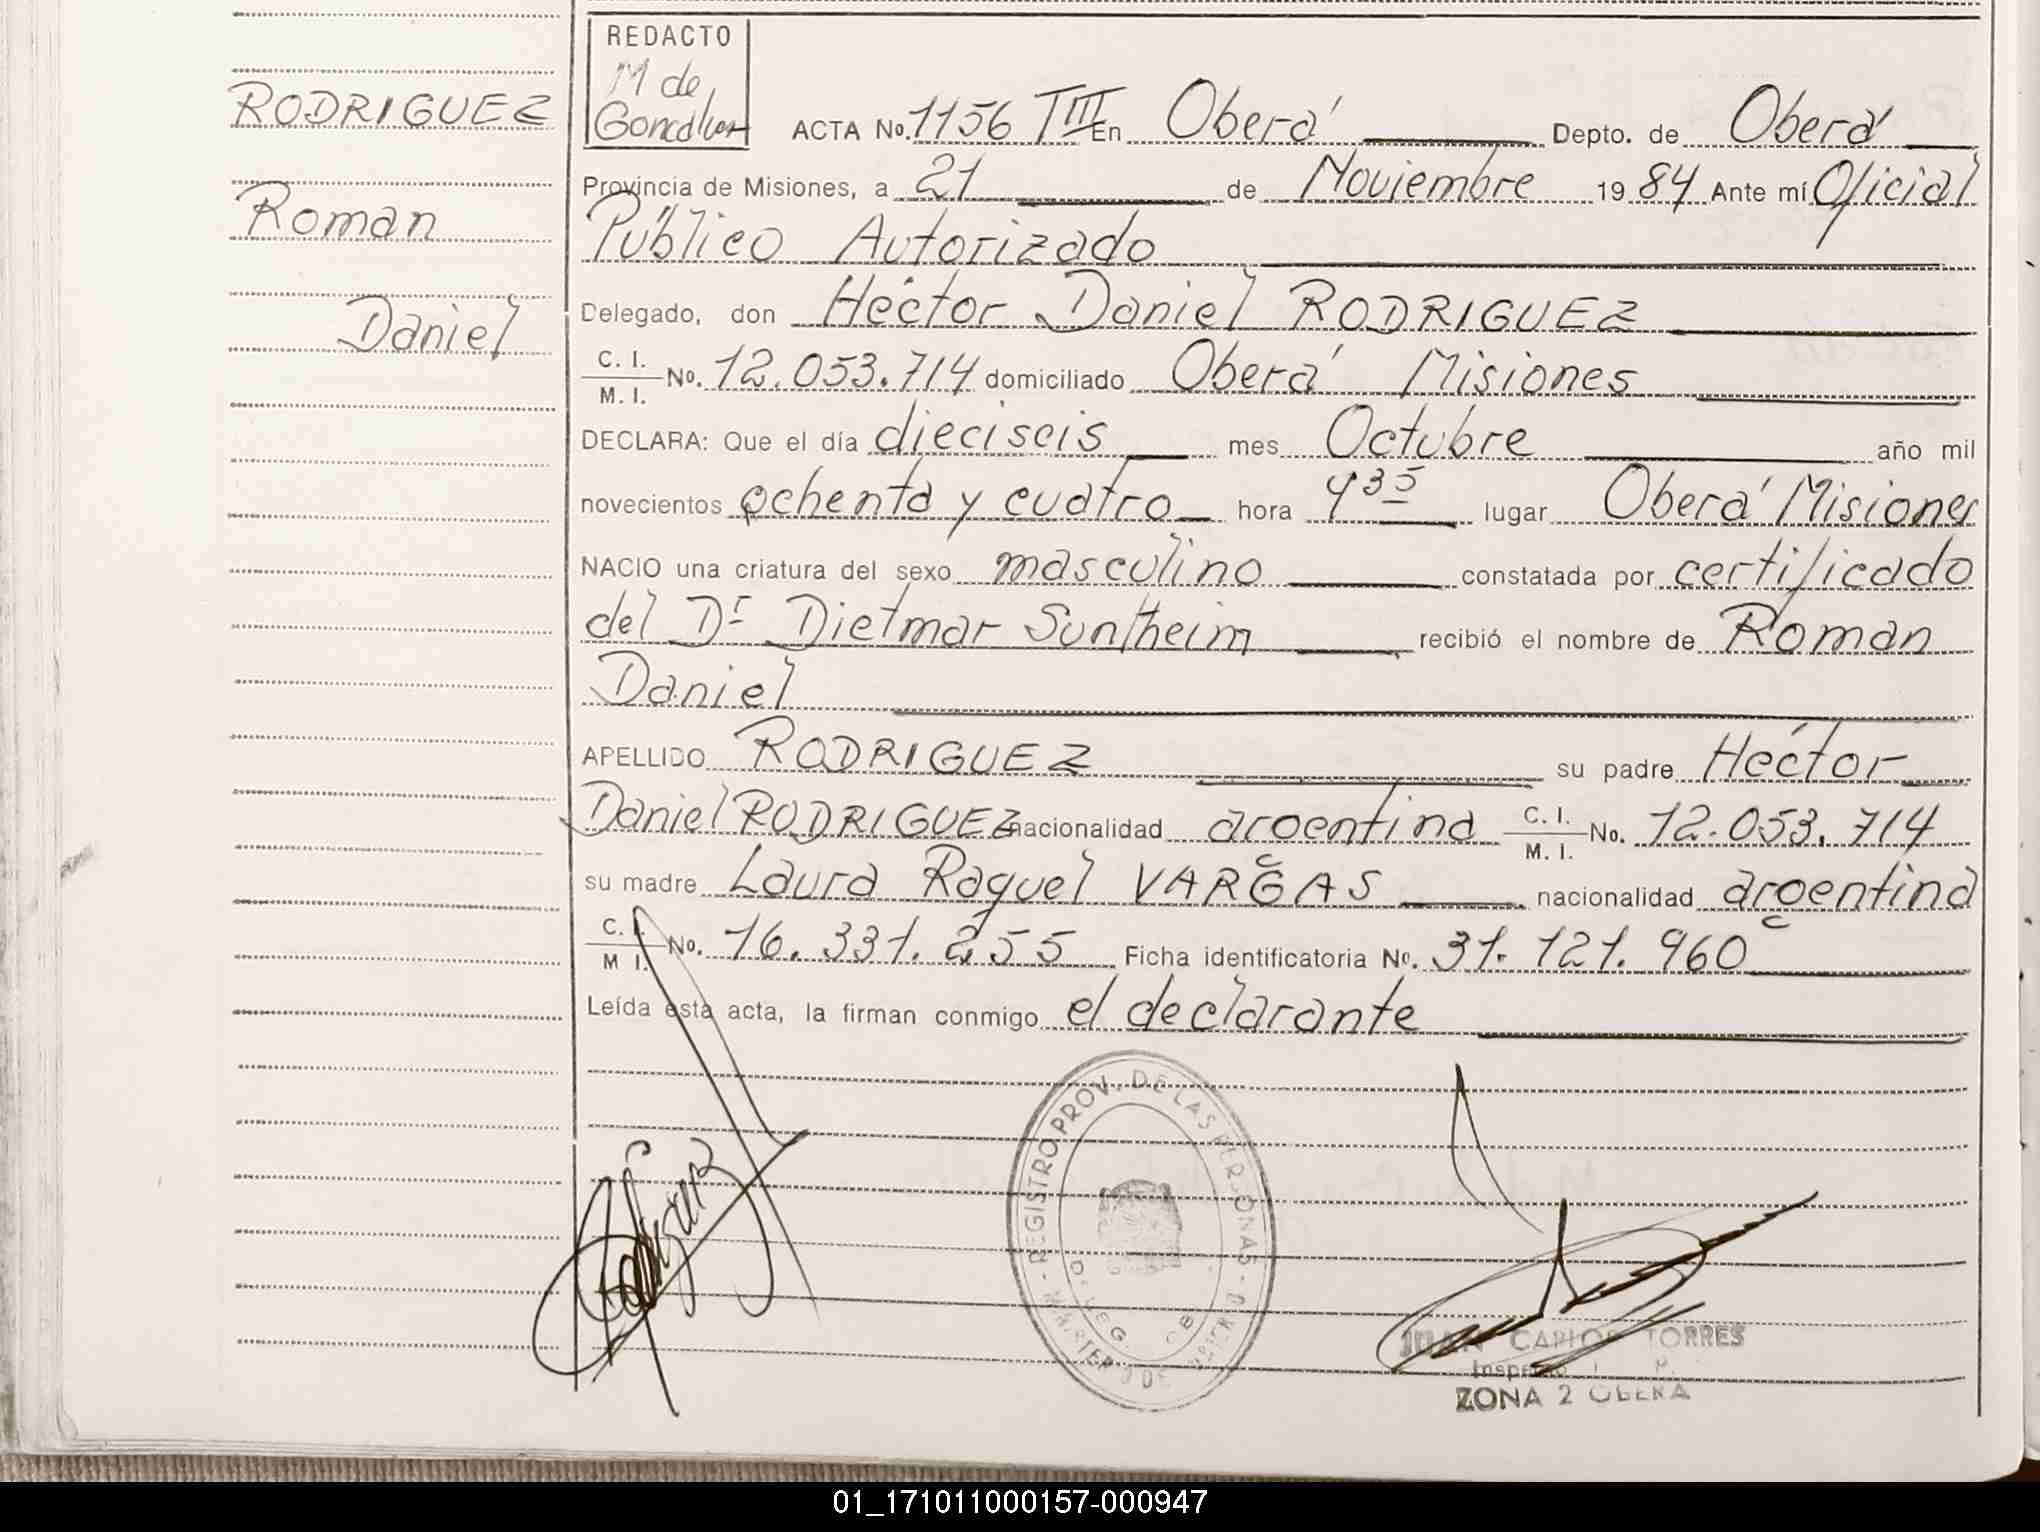 RODRIGUEZ
Roman
Daniel
REDACTO
M de
ACTA No. 1156 TIII En Oberá Depto. de Oberá
Provincia de Misiones, a 21 de Noviembre 1984 Ante mí Oficial
Público Autorizado
Delegado, don Héctor Daniel RODRIGUEZ
C. I.
M. I. No. 12.053.714 domiciliado Oberá Misiones
DECLARA: Que el día dieciseis mes Octubre año mil
novecientos ochenta y cuatro hora 9 35 lugar Oberá Misiones
NACIO una criatura del sexo masculino constatada por certificado
del Dr Dietmar Suntheim recibió el nombre de Roman
Daniel
APELLIDO RODRIGUEZ su padre Héctor
Daniel RODRIGUEZ nacionalidad argentina C. I.
M. I. No. 12.053.714
su madre Laura Raquel VARGAS nacionalidad argentina
C. I.
M I. No. 16.331.255 Ficha identificatoria No. 31.121.960
Leída esta acta, la firman conmigo el declarante
REGISTRO PROV. DE LAS PERSONAS
JUAN CARLOS TORRES
ZONA 2 OBERA
01_171011000157-000947